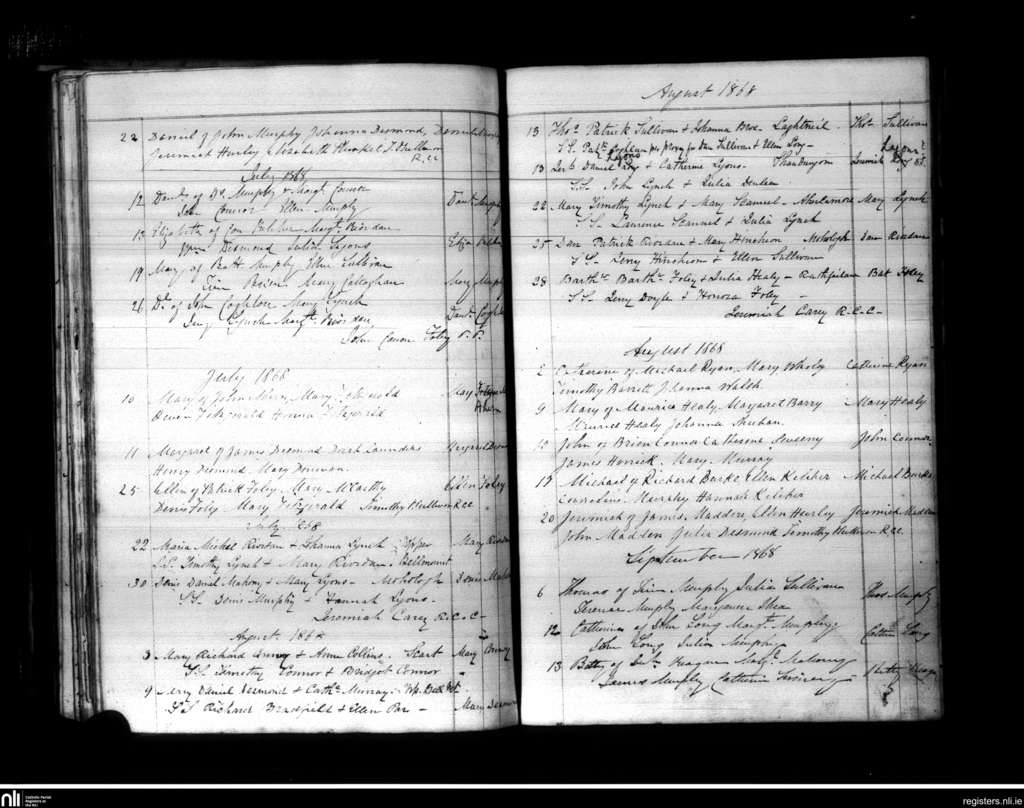 22 Daniel of John Murphy Johanna Desmond, Daniel Murphy
Jeremiah Hurley Elizabeth T. O'Sullivan
R.C.C
July 1868
12 Danl. of Ds. Murphy & Margt. Connor Danl. Murphy
John Connor Ellen Murphy
13 Elizabeth of Jon Margt. Riordan Eliza
Desmond Julia Lyons
19 Mary of Batt Murphy Ellen Sullivan Mary Murphy
Tim Mary Callaghan
26 Dl. of John Coghlan Mary Lynch Danl. Coghlan
Lynch Margt. Riordan
John Canon Foley P.P.
July 1868
10 Mary of John Mary Mary
Denis Fitzgerald Honora Fitzgerald
11 Margaret of James Desmond Saunders Margaret Desmond
Henry Desmond. Mary Donovan.
25 Ellen of Patrick Foley. Mary McCarthy Ellen Foley
Denis Foley Mary Fitzgerald Timothy O'Sullivan RCC
July 1868
22 Maria Michael Riordan & Johanna Lynch - Upper Mary Riordan
S.S. Timothy Lynch & Mary Riordan. Bellmount
30 Denis Daniel Mahony & Mary Lyons - Moholagh Denis Mahony
S.S. Denis Murphy & Hannah Lyons -
Jeremiah Carey R.C.C-
August 1868
3 Mary Richard & Anne Collins. Scart Mary
S.S. Timothy Connor & Bridget Connor
9 Mary Daniel Desmond & Cathe. Murray -
S.S Richard Bradfield & Ellen - Mary Desmond
August 1868
13 Thos. Patrick Sullivan & Johanna Laghtneil - Thos. Sullivan
S.S. Patk. Coghlan per proxy for Dan Sullivan & Ellen
Lyons
13 Daniel & Catherine Lyons - Jeremiah
S.S. John Lynch & Julia
22 Mary Timothy Lynch & Mary Scannel - Aherlamore Mary Lynch
S.S. Laurence Scannel & Julia Lynch
25 Dan Patrick Riordan & Mary Hinchion Moholagh Dan Riordan
S.S. Jerry Hinchion & Ellen Sullivan
28 Barthw. Barthw. Foley & Julia Healy - Bat Foley
S.S. Jerry Doyle & Honora Foley -
Jeremiah Carey R.C.C-
August 1868
2 Catherine of Michael Ryan, Mary Catherine Ryan
Timothy Barrett Johanna Walsh
9 Mary of Maurice Healy, Margaret Barry Mary Healy
Maurice Healy Johanna Sheehan.
John of Brien Connor Catherine Sweeny John Connor
James Herrick. Mary Murray
Michael of Richard Burke, Ellen Keliher Michael Burke
Cornelius Murphy Hannah Keliher
20 Jeremiah of James Madden, Ellen Hurley Jeremiah Madden
John Madden Julia Desmond Timothy O'Sullivan R.CC.
September 1868
6 Thomas of Tim Murphy Julia Sullivan Thos Murphy
Terence Murphy Margaret Shea
12 Catherine of John Long Margt. Murphy Cathne Long
John Long Julia Murphy
13 Betty of Reagan Margt. Mahony Betty Reagan
James Murphy Catherine
nli
Catholic Parish
Registers at
the NLI
registers.nli.ie